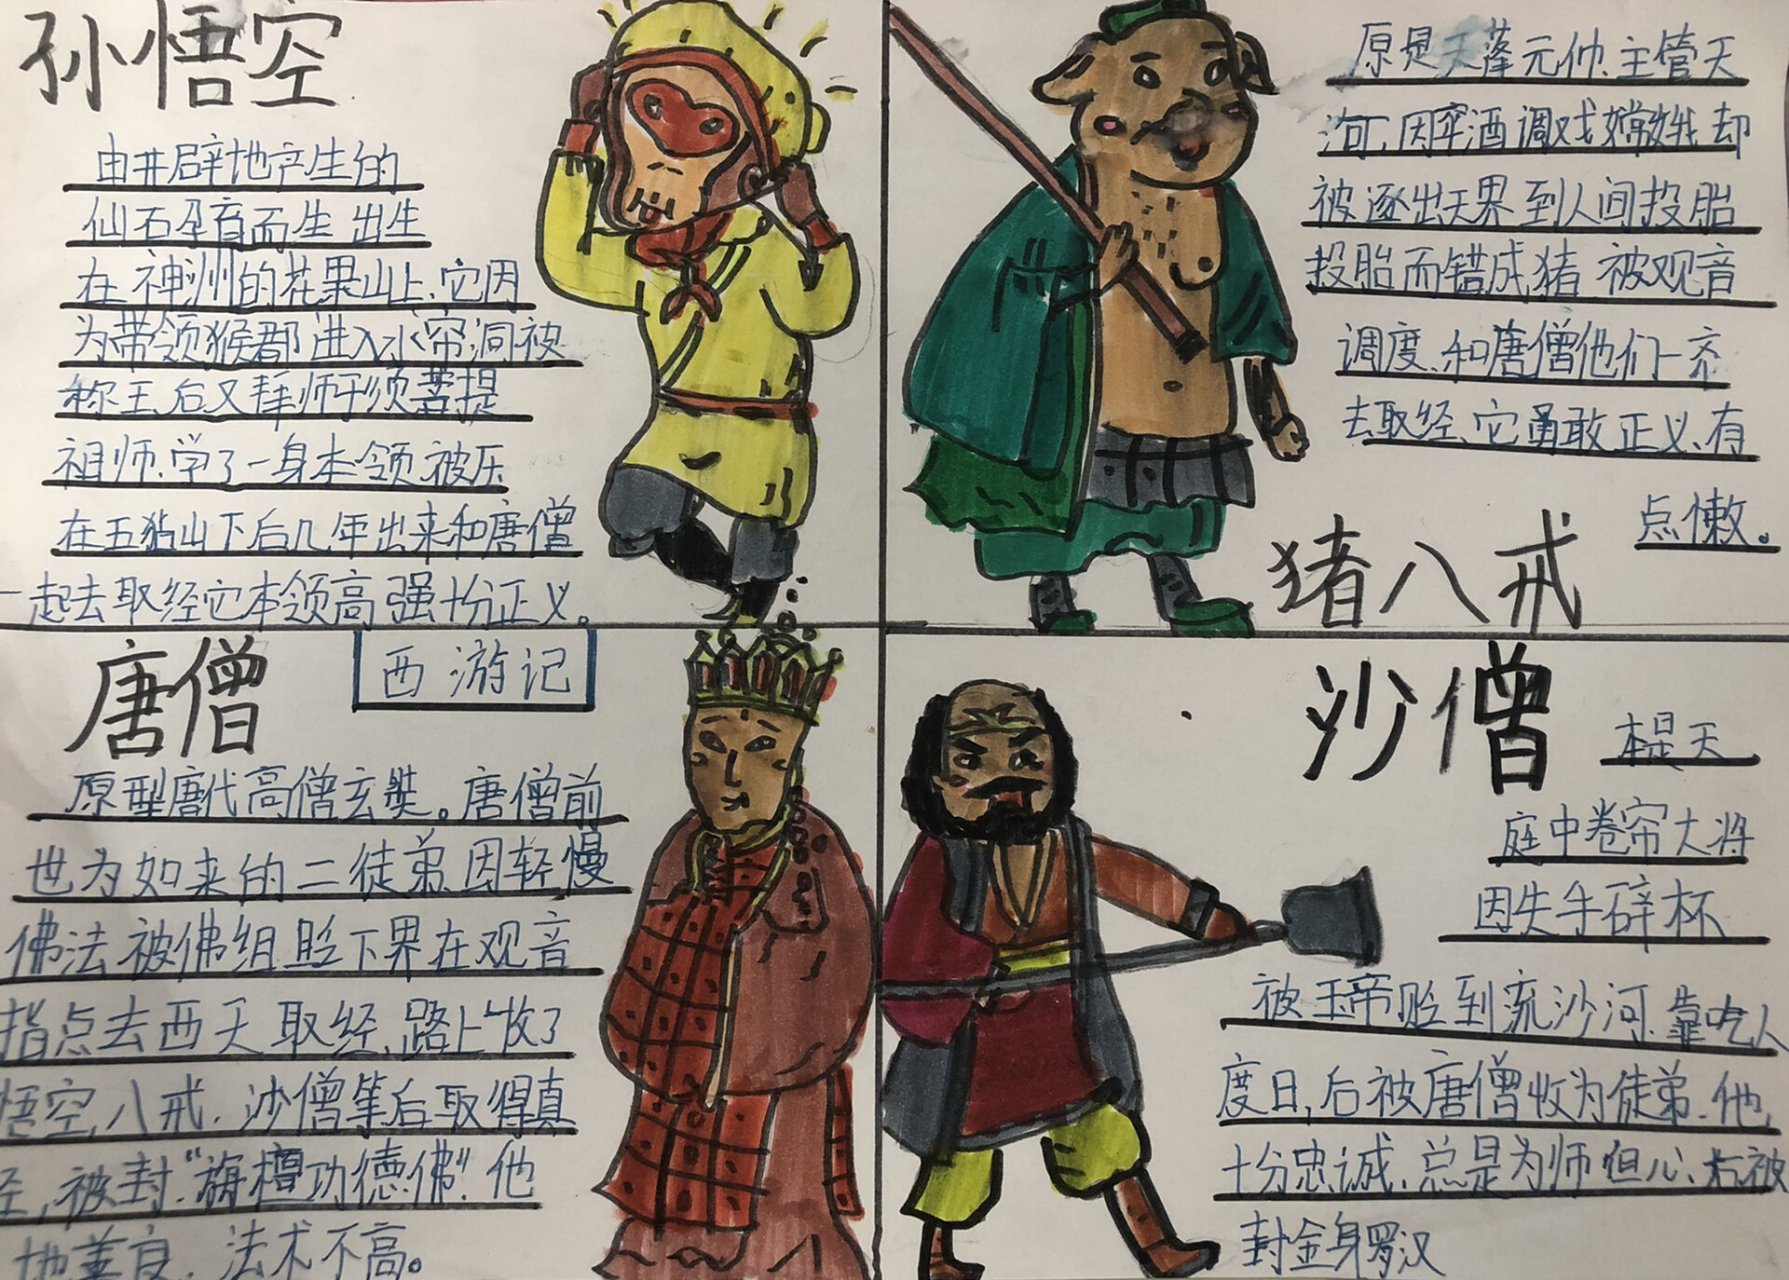 孙悟空
由开辟地产生的
仙石孕育而生 出生
在神洲的花果山上、它因
为带领猴郡 进入水帘洞被
称王、后又拜师于须菩提
祖师、学了一身本领、被压
在五指山下后几年出来和唐僧
一起去取经它本领高强十分正义。
原是天蓬元帅、主管天
河、因窂酒调戏嫦娥 却
被逐出天界 到人间投胎
投胎而错成猪 被观音
调度、和唐僧他们一齐
去取经、它勇敢正义、有
点懒。
猪八戒
唐僧
西游记
原型唐代高僧玄奘。唐僧前
世为如来的二徒弟、因轻慢
佛法 被佛组 贬下界在观音
指点去西天取经、路上收了
悟空、八戒、沙僧等后取得真
经、被封"旃檀功德佛"、他
地善良、法术不高。
沙僧
本是天
庭中卷帘大将
因失手碎杯
被玉帝贬到流沙河、靠吃人
度日、后被唐僧收为徒弟、他
十分忠诚、总是为师但心、右被
封金身罗汉